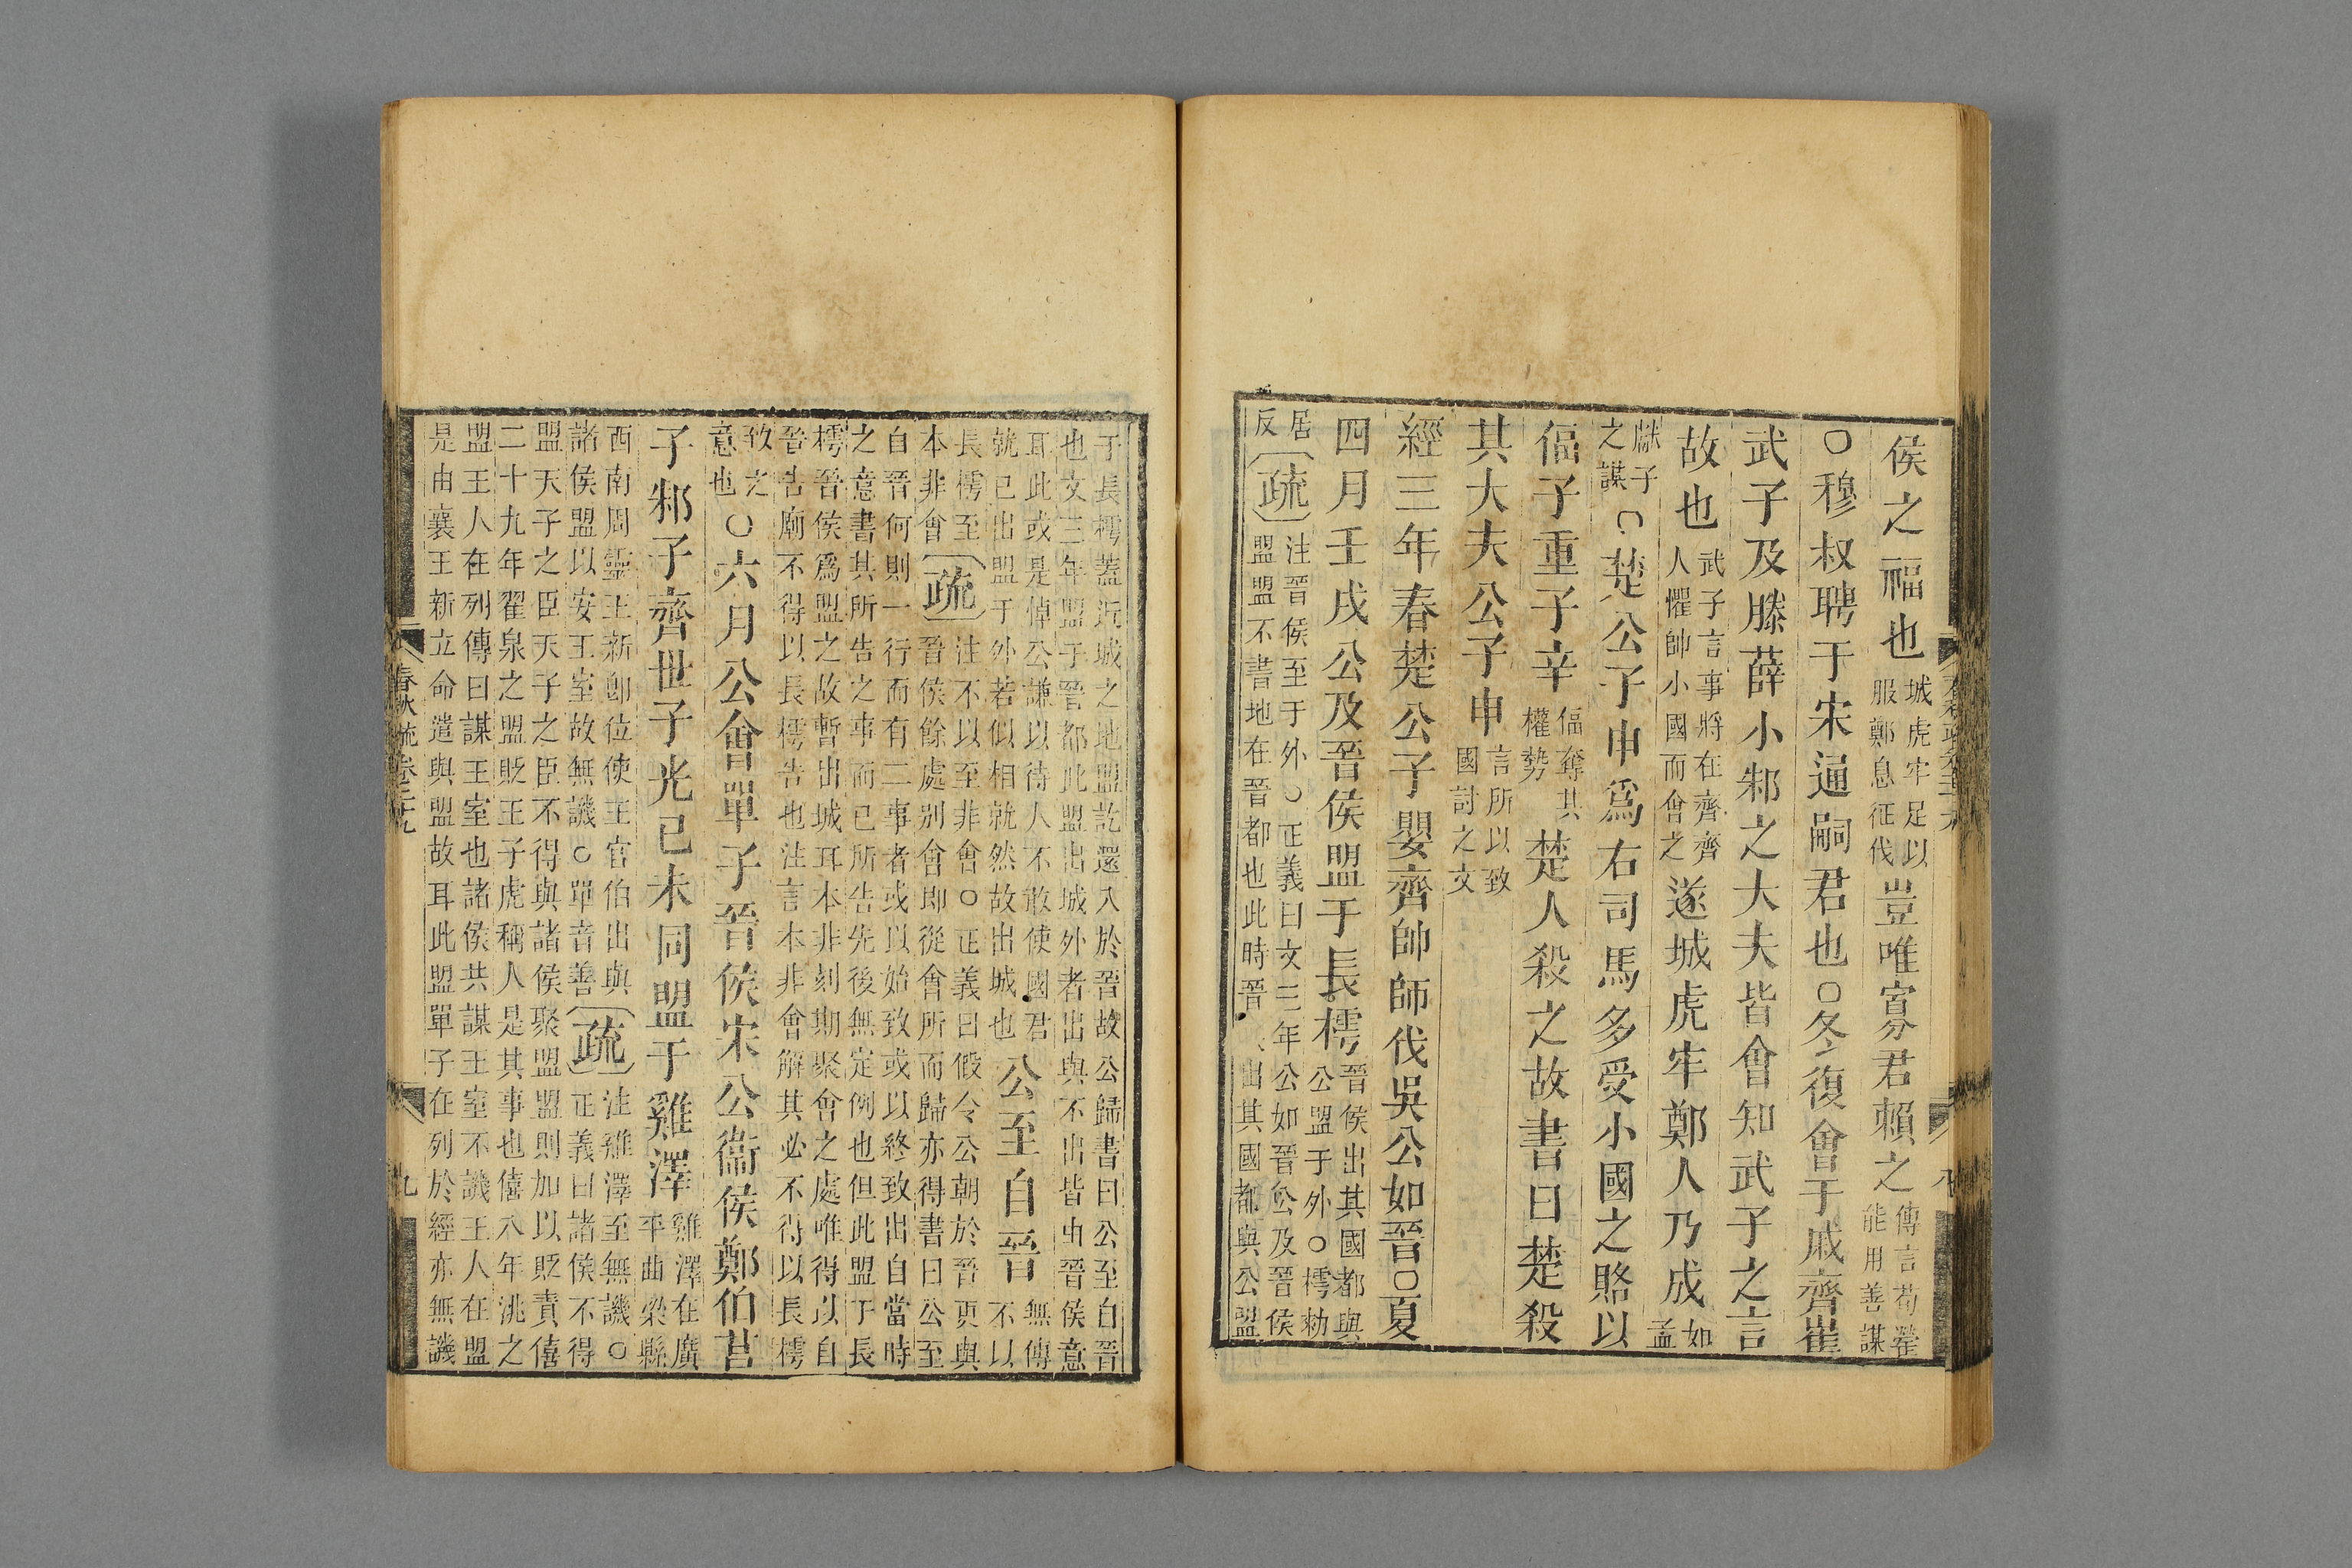 侯之福也城虎牢足以服鄭息征伐豈唯寡君賴之傳言荀罃能用善謀
○穆叔聘于宋通嗣君也○冬復會于戚齊崔
武子及滕薛小邾之大夫皆會知武子之言
故也武子言事將在齊齊人懼帥小國而會之遂城虎牢鄭人乃成如孟
獻子之謀○楚公子申爲右司馬多受小國之賂以
偪子重子辛偪奪其權勢楚人殺之故書曰楚殺
其大夫公子申言所以致國討之文
經三年春楚公子嬰齊帥師伐吳公如晉○夏
四月壬戌公及晉侯盟于長樗晉侯出其國都與公盟于外○樗勑
居反疏注晉侯至于外○正義曰文三年公如晉公及晉侯盟盟不書地在晉都也此時晉出其國都與公盟
于長樗蓋近城之地盟訖還入於晉故公歸書曰公至自晉
也文三年盟于晉都此盟出城外者出與不出皆由晉侯意
耳此或是悼公謙以待人不敢使國君就己出盟于外若似相就然故出城也公至自晉無傳不以
長樗至本非會疏注不以至非會○正義曰假令公朝於晉更與晉侯餘處別會即從會所而歸亦得書曰公至
自晉何則一行而有二事者或以始致或以終致出自當時
之意書其所告之事而已所告先後無定例也但此盟于長
樗晉侯爲盟之故暫出城耳本非刻期聚會之處唯得以自
晉告廟不得以長樗告也注言本非會解其必不得以長樗
致之意也○六月公會單子晉侯宋公衞侯鄭伯莒
子邾子齊世子光己未同盟于雞澤雞澤在廣平曲梁縣
西南周靈王新卽位使王官伯出與諸侯盟以安王室故無譏○單音善疏注雞澤至無譏○正義曰諸侯不得
盟天子之臣天子之臣不得與諸侯聚盟盟則加以貶責僖
二十九年翟泉之盟貶王子虎稱人是其事也僖八年洮之
盟王人在列傳曰謀王室也諸侯共謀王室不譏王人在盟
是由襄王新立命遣與盟故耳此盟單子在列於經亦無譏
春秋疏卷二十九
九